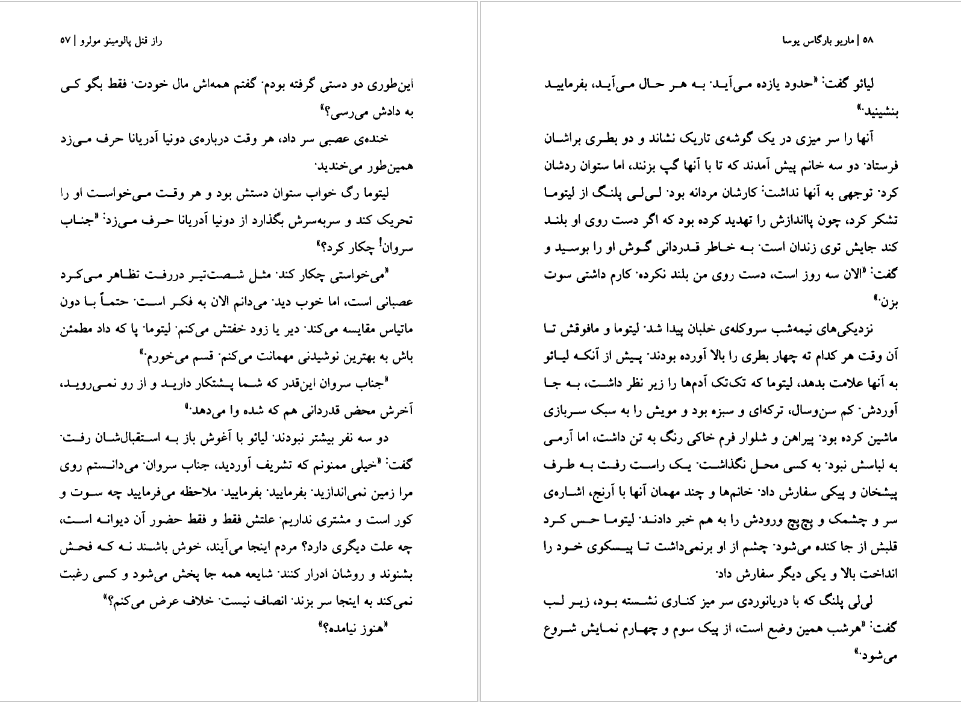 راز قتل پالومینو مولرو | ۵۷
این‌طوری دو دستی گرفته بودم. گفتم همه‌اش مال خودت. فقط بگو کی
به دادش می‌رسی؟»
خنده‌ی عصبی سر داد، هر وقت درباره‌ی دونیا آدریانا حرف می‌زد
همین‌طور می‌خندید.
لیتوما رگ خواب ستوان دستش بود و هر وقت می‌خواست او را
تحریک کند و سربه‌سرش بگذارد از دونیا آدریانا حرف می‌زد: «جناب
سروان! چکار کرد؟»
«می‌خواستی چکار کند. مثل شصت‌تیر دررفت تظاهر می‌کرد
عصبانی است، اما خوب دید. می‌دانم الان به فکر است. حتماً با دون
ماتیاس مقایسه می‌کند. دیر یا زود خفتش می‌کنم. لیتوما. پا که داد مطمئن
باش به بهترین نوشیدنی مهمانت می‌کنم. قسم می‌خورم.»
«جناب سروان این‌قدر که شما پشتکار دارید و از رو نمی‌روید،
آخرش محض قدردانی هم که شده وا می‌دهد.»
دو سه نفر بیشتر نبودند. لیائو با آغوش باز به استقبال‌شان رفت.
گفت: «خیلی ممنونم که تشریف آوردید، جناب سروان. می‌دانستم روی
مرا زمین نمی‌اندازید. بفرمایید. بفرمایید. ملاحظه می‌فرمایید چه سوت و
کور است و مشتری نداریم. علتش فقط و فقط حضور آن دیوانه است،
چه علت دیگری دارد؟ مردم اینجا می‌آیند، خوش باشند نه که فحش
بشنوند و روشان ادرار کنند. شایعه همه جا پخش می‌شود و کسی رغبت
نمی‌کند به اینجا سر بزند. انصاف نیست. خلاف عرض می‌کنم؟»
«هنوز نیامده؟»
۵۸ | ماریو بارگاس یوسا
لیائو گفت: «حدود یازده می‌آید. به هر حال می‌آید، بفرمایید
بنشینید.»
آنها را سر میزی در یک گوشه‌ی تاریک نشاند و دو بطری براشان
فرستاد. دو سه خانم پیش آمدند که تا با آنها گپ بزنند، اما ستوان ردشان
کرد. توجهی به آنها نداشت: کارشان مردانه بود. لی‌لی پلنگ از لیتوما
تشکر کرد، چون پااندازش را تهدید کرده بود که اگر دست روی او بلند
کند جایش توی زندان است. به خاطر قدردانی گوش او را بوسید و
گفت: «الان سه روز است، دست روی من بلند نکرده. کارم داشتی سوت
بزن.»
نزدیکی‌های نیمه‌شب سروکله‌ی خلبان پیدا شد. لیتوما و مافوقش تا
آن وقت هر کدام ته چهار بطری را بالا آورده بودند. پیش از آنکه لیائو
به آنها علامت بدهد، لیتوما که تک‌تک آدم‌ها را زیر نظر داشت، به جا
آوردش. کم سن‌وسال، ترکه‌ای و سبزه بود و مویش را به سبک سربازی
ماشین کرده بود. پیراهن و شلوار فرم خاکی رنگ به تن داشت، اما آرمی
به لباسش نبود. به کسی محل نگذاشت. یک راست رفت به طرف
پیشخان و پیکی سفارش داد. خانم‌ها و چند مهمان آنها با آرنج، اشاره‌ی
سر و چشمک و پچ‌پچ ورودش را به هم خبر دادند. لیتوما حس کرد
قلبش از جا کنده می‌شود. چشم از او برنمی‌داشت تا پیسکوی خود را
انداخت بالا و یکی دیگر سفارش داد.
لی‌لی پلنگ که با دریانوردی سر میز کناری نشسته بود، زیر لب
گفت: «هرشب همین وضع است، از پیک سوم و چهارم نمایش شروع
می‌شود.»